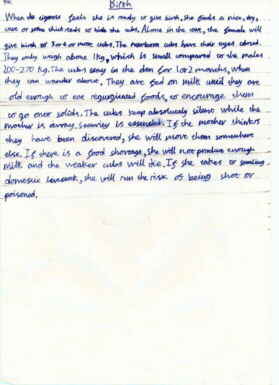 Birth
When a tigress feels she is ready to give birth, she finds a nice, dry,
cave or some thick reeds to hide the cubs. Alone in the cave, the female will
give birth to 3 or 4 or more cubs. The newborn cubs have their eyes closed.
They only weigh above 1 Kg, which is small compared to the males
200-270 Kg. The cubs stay in the den for 1 or 2 months, when
they can wander above. They are fed on milk until they are
old enough to eat regurgitated foods, to encourage them
to go over solids. The cubs keep absolutely silent while the
mother is away, security is essential. If the mother thinks
they have been discovered, she will move them somewhere
else. If there is a food shortage, she will not produce enough
milk and the weaker cubs will die. If she takes to
domestic livestock, she will run the risk of being shot or
poisoned.